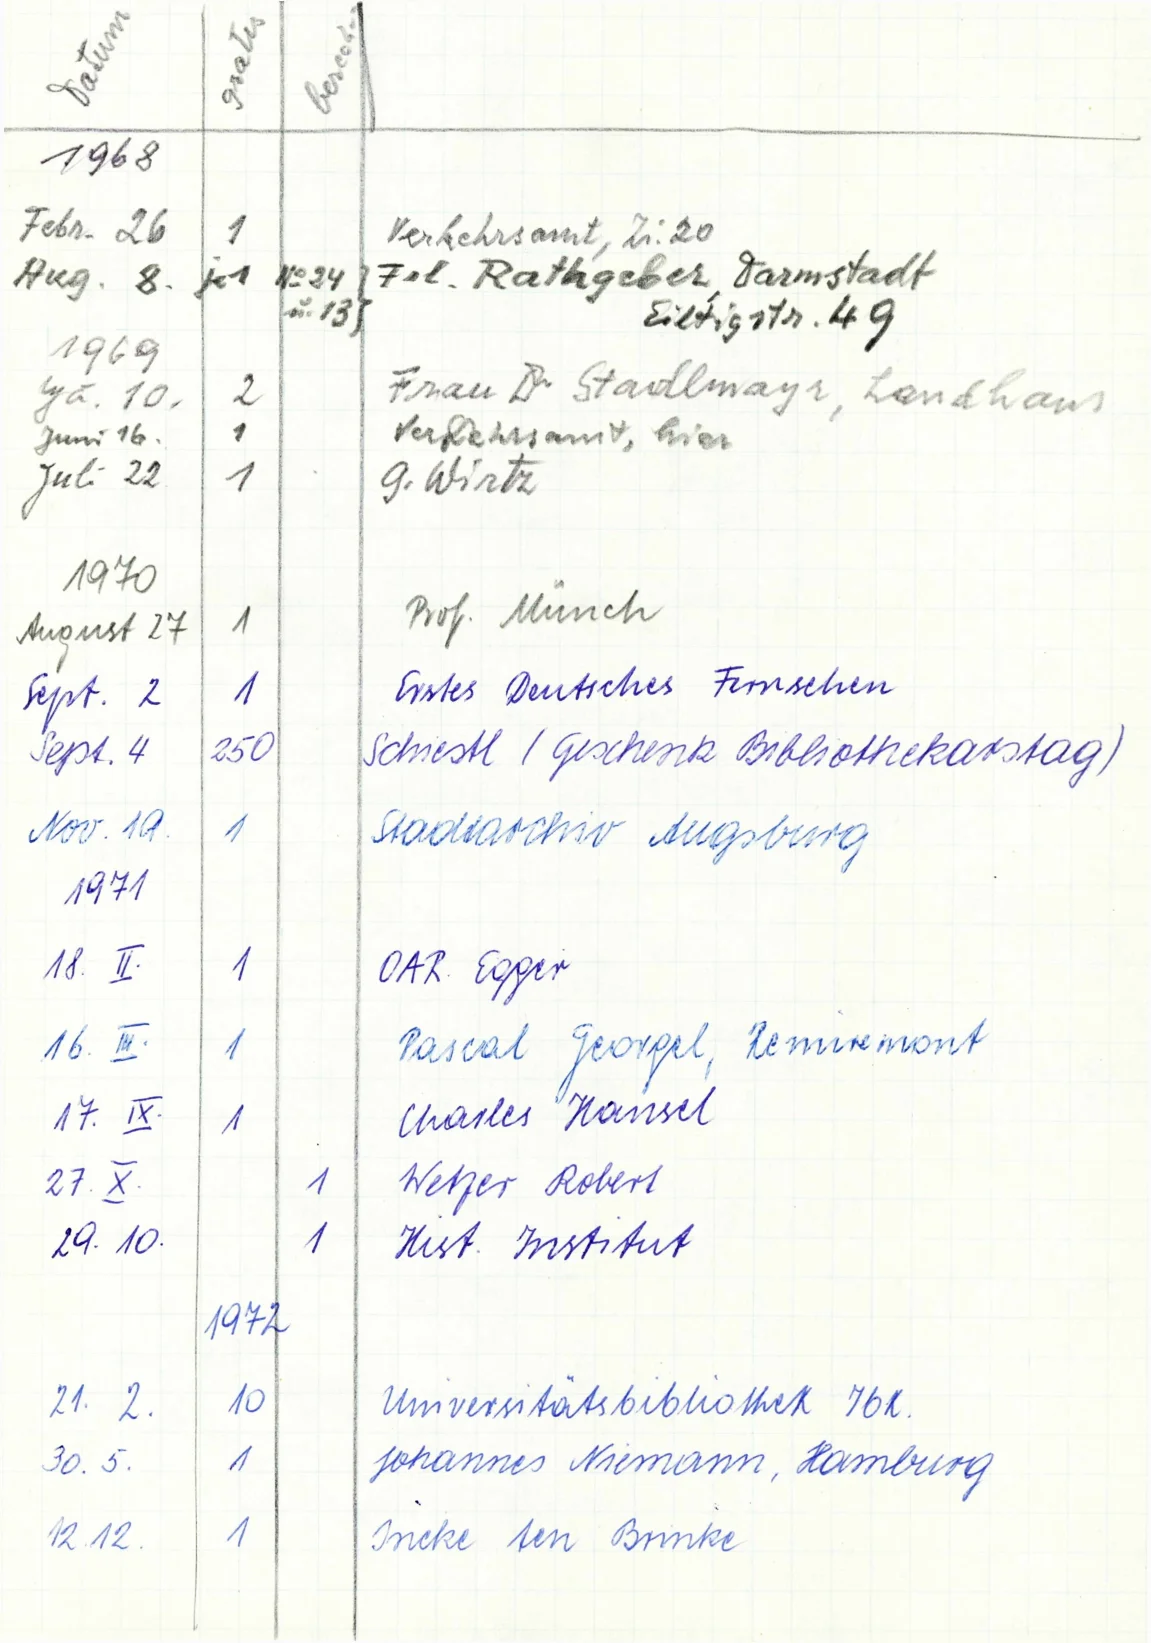 Datum gratis
1968
Febr. 26 1 Verkehrsamt, Zi. 20
Aug. 8. je 1 No 24 } Frl. Rathgeber, Darmstadt
u. 13 } 49
1969
10. 2 Frau Dr Stadlmayr, Landhaus
Juni 16. 1 Verkehrsamt, hier
Juli 22 1 G. Wirtz
1970
August 27 1 Prof. Münch
Sept. 2 1 Erstes Deutsches Fernsehen
Sept. 4 250 Schiestl (Geschenk Bibliothekarstag)
Nov. 19. 1 Stadtarchiv Augsburg
1971
18. II. 1 OAR. Egger
16. III. 1 Pascal Georgel, Remiremont
17. IX. 1 Charles Hansel
27. X. 1 Robert
29. 10. 1 Hist. Institut
1972
21. 2. 10 Universitätsbibliothek Ibk.
30. 5. 1 Johannes Niemann, Hamburg
12.12. 1 Ineke ten Brinke